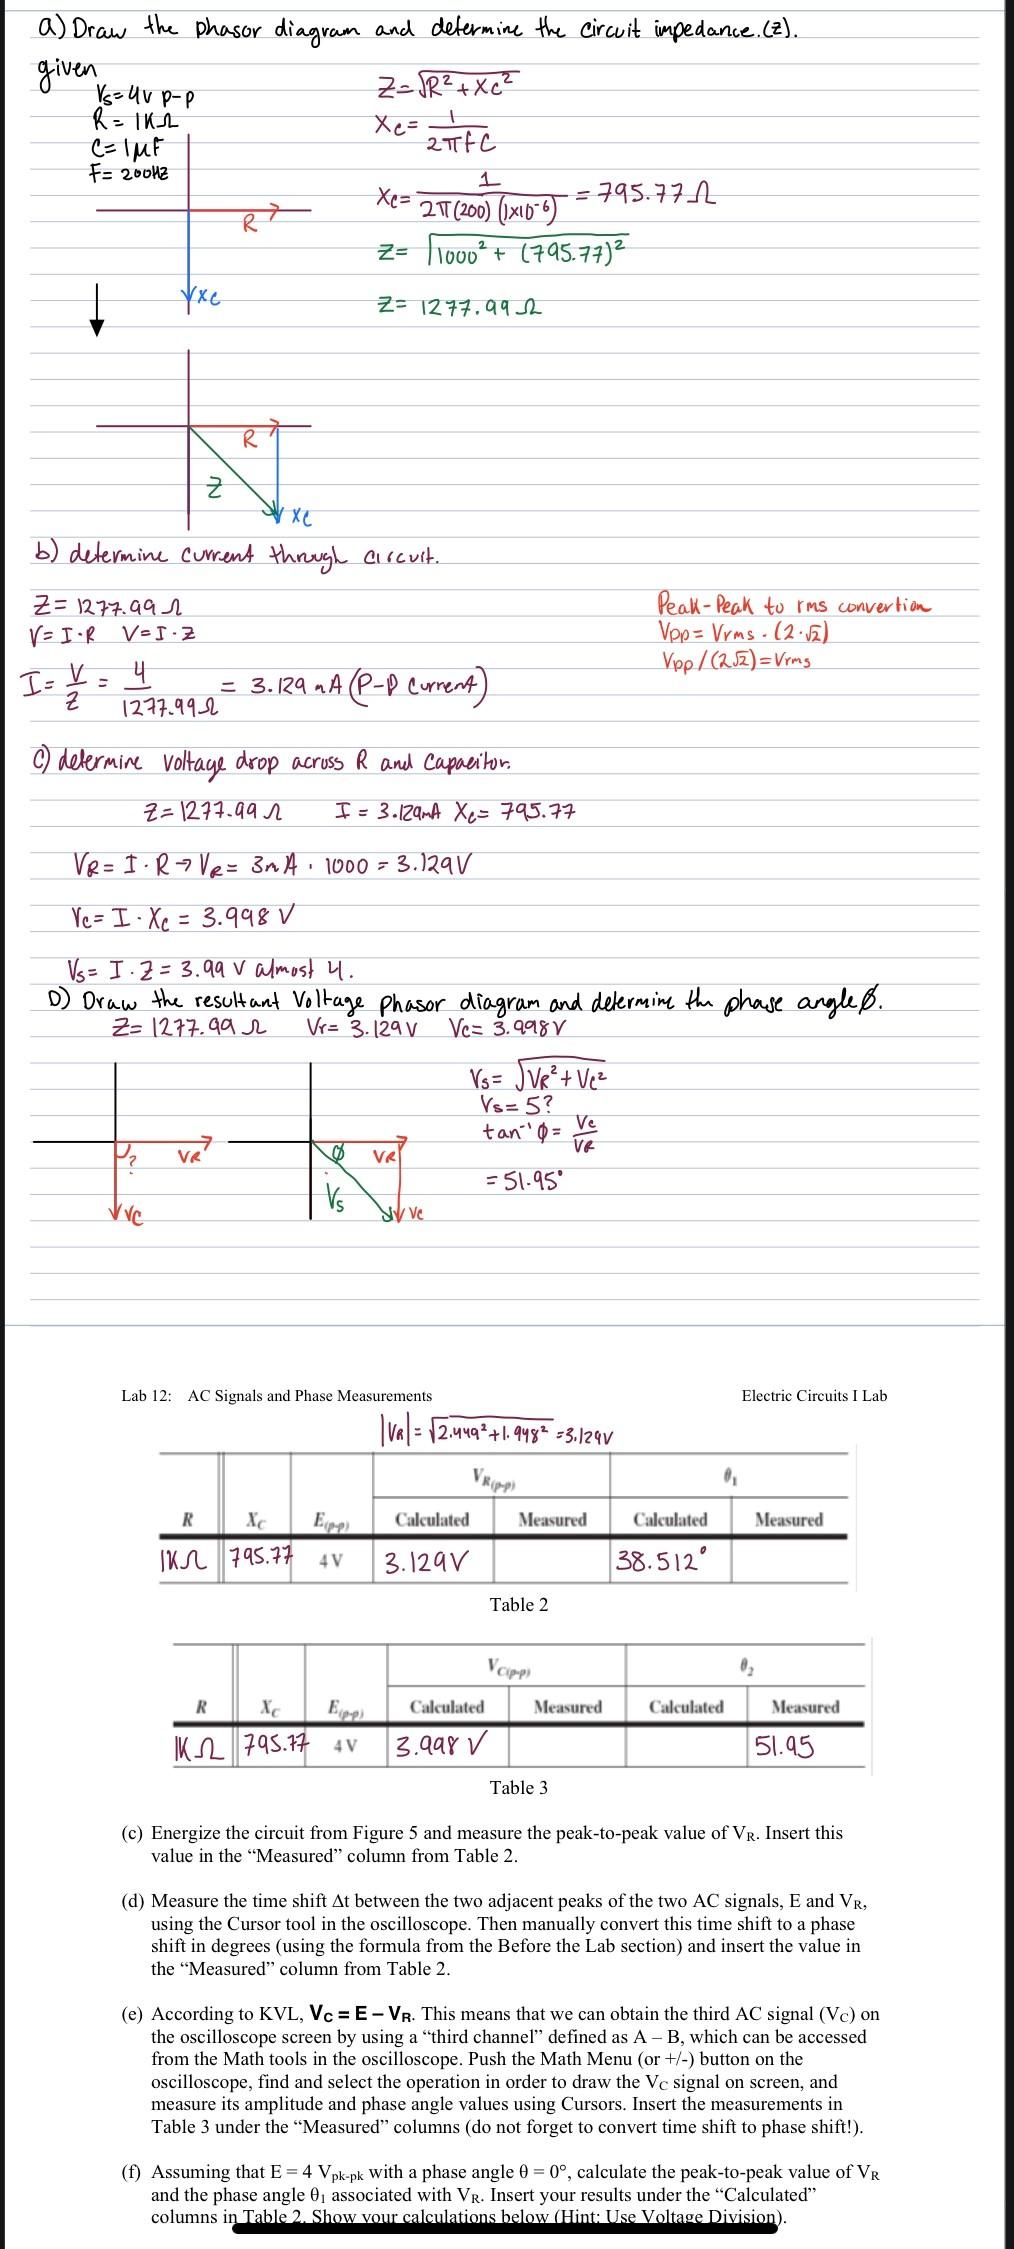 a) Draw the phasor diagram and determine the circuit impedance.(Z).
given
Vs=4v p-p
R= 1KΩ
C=1μF
F= 200Hz
Z=√R²+Xc²
Xc= 1/2πfC
Xc= 1/2π(200)(1x10⁻⁶) = 795.77Ω
Z= √1000² + (795.77)²
Z= 1277.99Ω
R
Xc
R
Z
Xc
b) determine current through circuit.
Z= 1277.99Ω
V= I·R V=I·Z
I= V/Z = 4/1277.99Ω = 3.129 mA (P-P current)
Peak-Peak to rms convertion
Vpp= Vrms·(2·√2)
Vpp/(2√2)=Vrms
C) determine voltage drop across R and Capacitor.
Z=1277.99Ω I= 3.129mA Xc= 795.77
VR= I·R→VR= 3mA · 1000 = 3.129V
Vc= I·Xc = 3.998 V
Vs= I·Z = 3.99 V almost 4.
D) Draw the resultant Voltage phasor diagram and determine the phase angle ø.
Z= 1277.99Ω Vr= 3.129v Vc= 3.998V
Vs= √VR²+Vc²
Vs=5?
tan⁻¹ø= Vc/VR
=51.95°
?
VR
VC
ø
VR
Vs
VC
Lab 12: AC Signals and Phase Measurements Electric Circuits I Lab
|VR|=√2.449²+1.948² =3.129V
VR(p-p) θ1
R XC E(p-p) Calculated Measured Calculated Measured
1KΩ 795.77 4 V 3.129V 38.512°
Table 2
VC(p-p) θ2
R XC E(p-p) Calculated Measured Calculated Measured
1KΩ 795.77 4 V 3.998 V 51.95
Table 3
(c) Energize the circuit from Figure 5 and measure the peak-to-peak value of VR. Insert this
value in the “Measured” column from Table 2.
(d) Measure the time shift Δt between the two adjacent peaks of the two AC signals, E and VR,
using the Cursor tool in the oscilloscope. Then manually convert this time shift to a phase
shift in degrees (using the formula from the Before the Lab section) and insert the value in
the “Measured” column from Table 2.
(e) According to KVL, VC = E – VR. This means that we can obtain the third AC signal (VC) on
the oscilloscope screen by using a “third channel” defined as A – B, which can be accessed
from the Math tools in the oscilloscope. Push the Math Menu (or +/-) button on the
oscilloscope, find and select the operation in order to draw the VC signal on screen, and
measure its amplitude and phase angle values using Cursors. Insert the measurements in
Table 3 under the “Measured” columns (do not forget to convert time shift to phase shift!).
(f) Assuming that E = 4 Vpk-pk with a phase angle θ = 0°, calculate the peak-to-peak value of VR
and the phase angle θ1 associated with VR. Insert your results under the “Calculated”
columns in Table 2. Show your calculations below (Hint: Use Voltage Division).